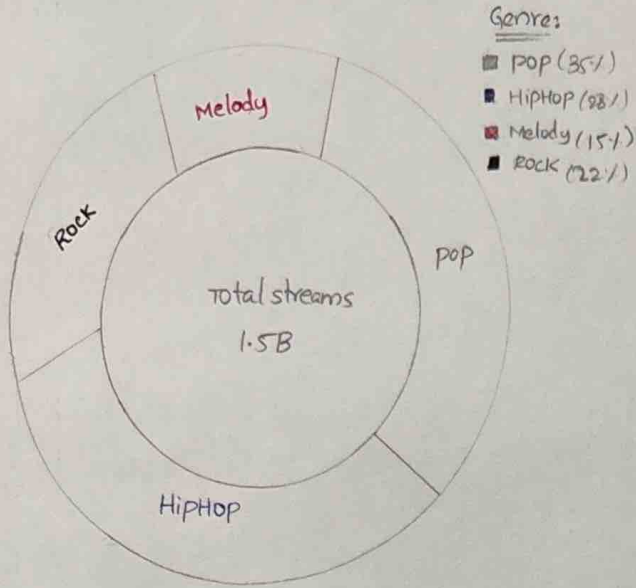 Genre:
POP (35%)
HipHop (28%)
Melody (15%)
ROCK (22%)
Melody
ROCK
POP
Total streams
1.5B
HipHop